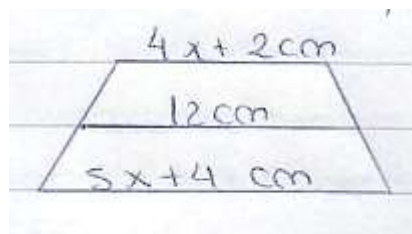 4x+2cm
12cm
5x+4 cm